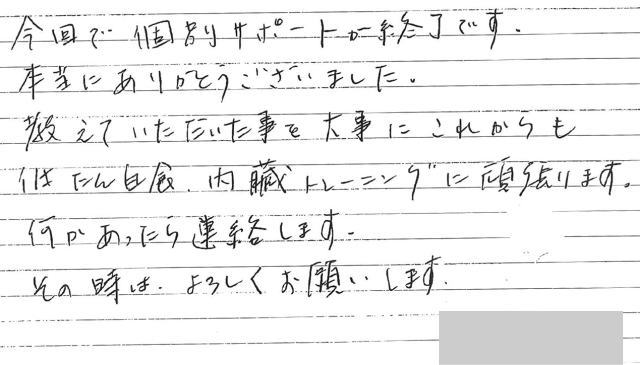 今回で個別サポートが終了です.
本当にありがとうございました.
教えていただいた事を大事にこれからも
たん白食、内臓トレーニングに頑張ります。
何かあったら連絡します.
その時は、よろしくお願いします.